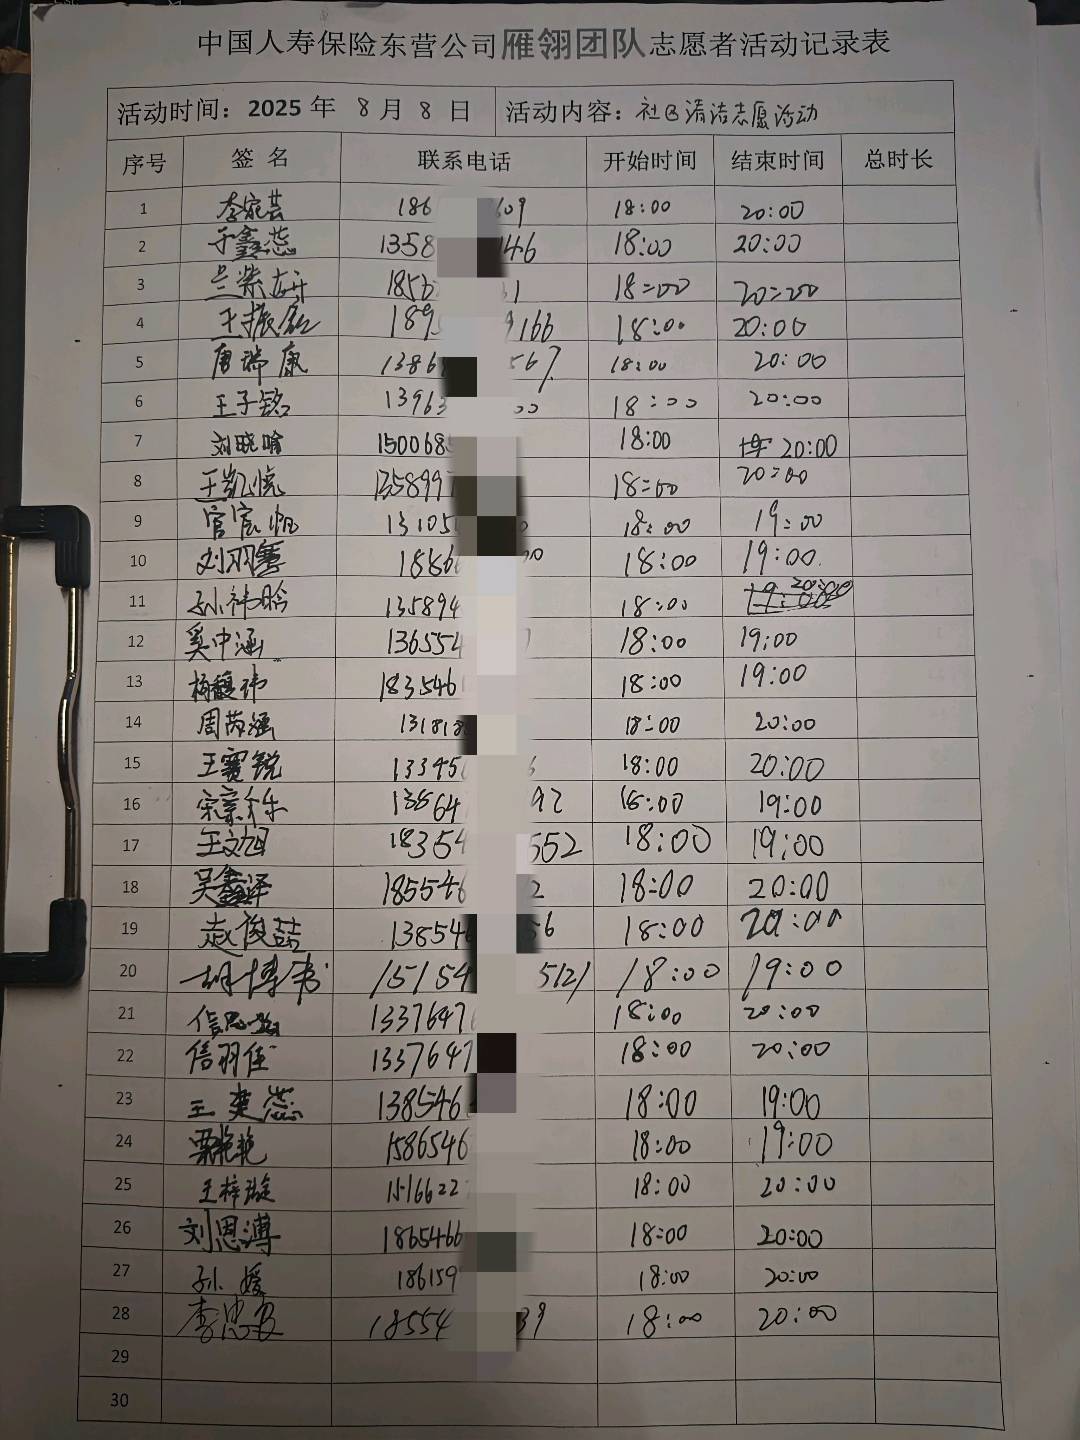 中国人寿保险东营公司雁翎团队志愿者活动记录表
活动时间：2025 年 8 月 8 日 活动内容：社区清洁志愿活动
序号 签 名 联系电话 开始时间 结束时间 总时长
1 李家芸 186 609 18:00 20:00
2 于鑫蕊 1358 146 18:00 20:00
3 兰紫妍 185 1 18:00 20:00
4 王振 189 9166 18:00 20:00
5 唐瑞康 1386 567 18:00 20:00
6 王子铭 13963 00 18:00 20:00
7 刘晓晗 150068 18:00 20:00
8 王凯悦 1358997 18:00 20:00
9 官宸 13105 18:00 19:00
10 刘羽 1886 00 18:00 19:00
11 孙祎晗 135894 18:00 20:00
12 奚中涵 136554 18:00 19:00
13 杨馥祎 183546 18:00 19:00
14 周芮涵 13181 18:00 20:00
15 王赛锐 13395 18:00 20:00
16 宋 13564 92 18:00 19:00
17 王文旭 18354 552 18:00 19:00
18 吴鑫泽 185546 2 18:00 20:00
19 赵俊喆 138546 56 18:00 20:00
20 胡博书 15154 5121 18:00 19:00
21 信 1337647 18:00 20:00
22 信羽佳 1337647 18:00 20:00
23 王奕蕊 138546 18:00 19:00
24 栗艳艳 1586546 18:00 19:00
25 王梓璇 1516622 18:00 20:00
26 刘恩溥 1865466 18:00 20:00
27 孙媛 186159 18:00 20:00
28 李忠 18554 39 18:00 20:00
29
30